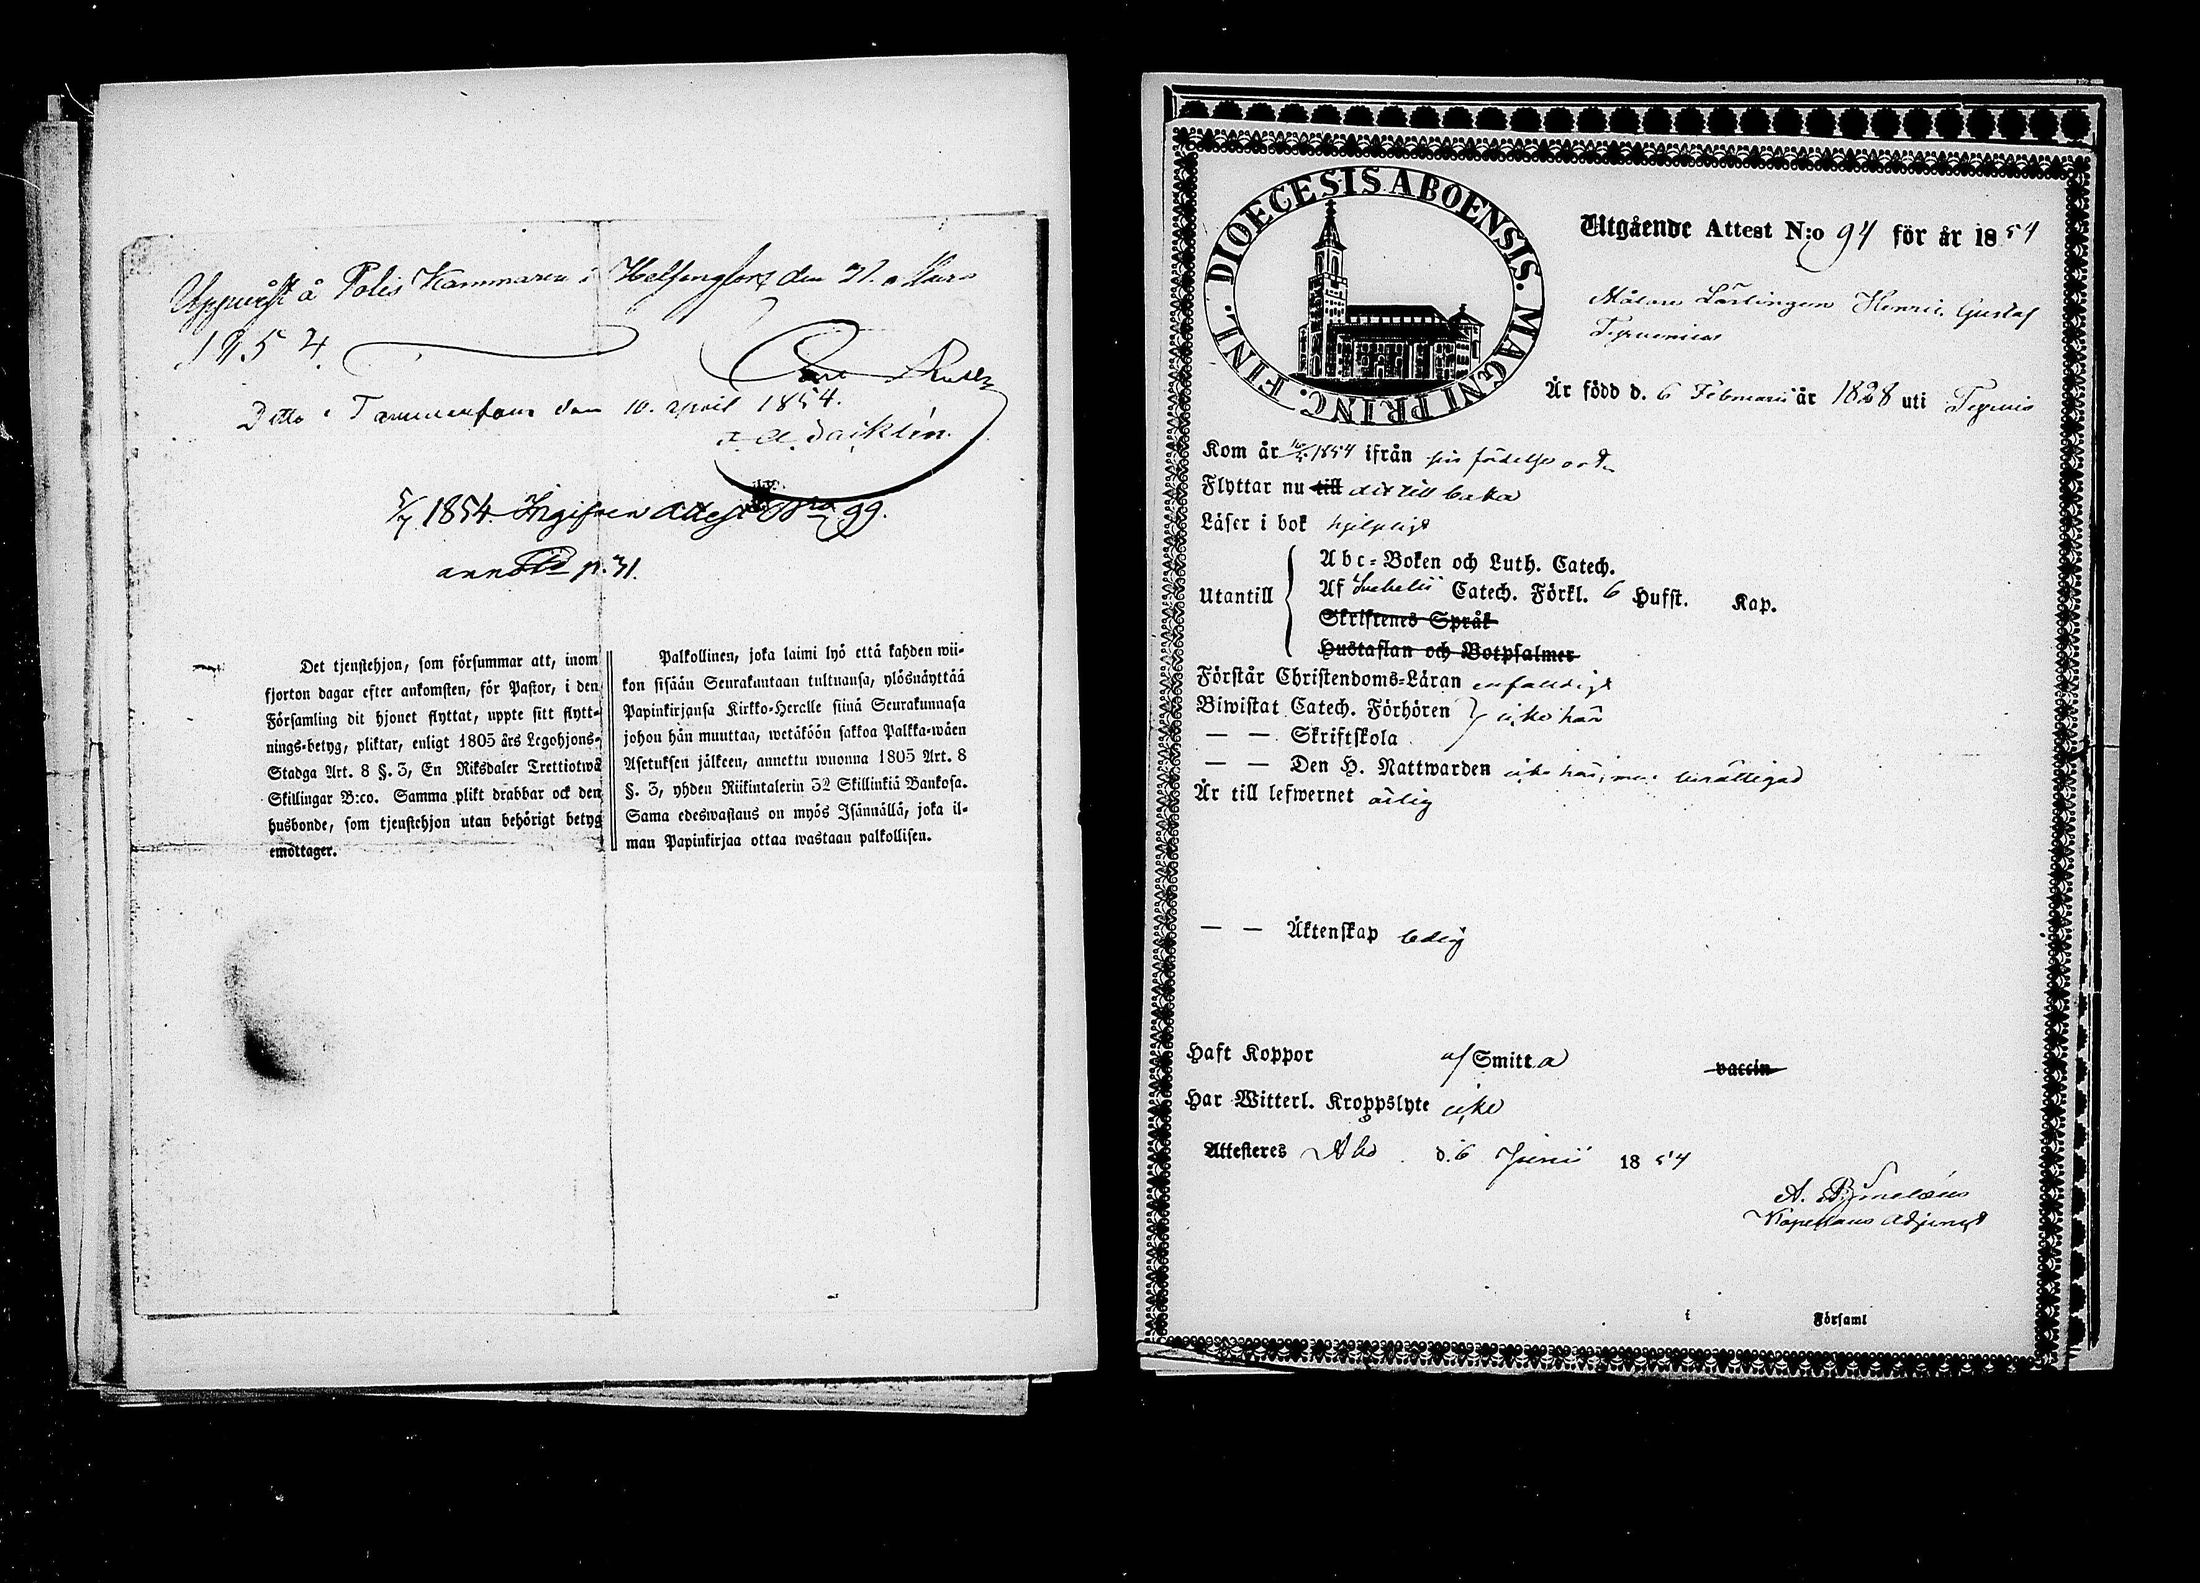 Uppwist å Polis Kammaren i Helsingfors den 31. Mars
1854.
Carl
Ditto i den 10. april 1854.
5/7 1854. Ingifven Attest N:ro 99.
annot. p. 31.
Det tjenstehjon, som försummar att, inom
fjorton dagar efter ankomsten, för Pastor, i den
Församling dit hjonet flyttat, uppte sitt flytt-
nings-betyg, pliktar, enligt 1805 års Legohjons-
Stadga Art. 8 §. 3, En Riksdaler Trettiotwå
Skillingar B:co. Samma plikt drabbar ock den
husbonde, som tjenstehjon utan behörigt betyg
emottager.
Palkollinen, joka laimi lyö että kahden wii-
kon sisään Seurakuntaan tultuansa, ylösnäyttää
Papinkirjansa Kirkko-Heralle siinä Seurakunnasa
johon hän muuttaa, wetäköön sakkoa Palkka-wäen
Asetuksen jälkeen, annettu wuonna 1805 Art. 8
§. 3, yhden Riikintalerin 32 Skillinkiä Bankosa.
Sama edeswastaus on myös Isännällä, joka il-
man Papinkirjaa ottaa wastaan palkollisen.
DIOECESIS ABOENSIS. MAGNI PRINC. FINL.
Utgående Attest N:o 94 för år 1854
Målare Lärlingen Henric Gustaf
Är född d. 6 Februarii år 1828 uti
Kom år 1854 ifrån sin födelse ort
Flyttar nu till dit till baka
Läser i bok hjelpligt
Utantill
Abc-Boken och Luth. Catech.
Af Svebelii Catech. Förkl. 6 Hufst. Kap.
Skriftenes Språk
Hustaflan och Botpsalmer
Förstår Christendoms-Läran enfaldigt
Biwistat Catech. Förhören icke här
— — Skriftskola
— — Den H. Nattwarden icke här, men berättigad
Är till lefwernet ärlig
— — Äktenskap ledig
Haft Koppor af Smitta vaccin
Har Witterl. Kroppslyte icke
Attesteres Åbo d. 6 Junii 1854
A.
Kapellans Adjunct
i Församl